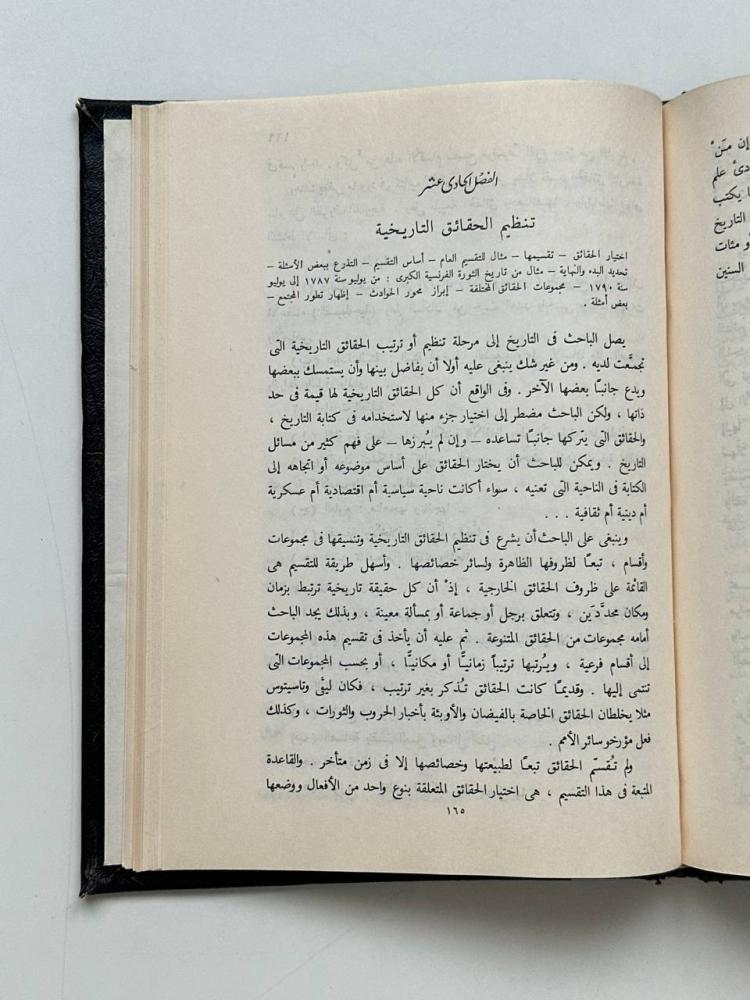 الفصل الحادى عشر
تنظيم الحقائق التاريخية
اختيار الحقائق – تقسيمها – مثال للتقسيم العام – أساس التقسيم – التذرع ببعض الأسئلة –
تحديد البدء والنهاية – مثال من تاريخ الثورة الفرنسية الكبرى : من يوليو سنة ١٧٨٧ إلى يوليو
سنة ١٧٩٠ – مجموعات الحقائق المختلفة – إبراز محور الحوادث – إظهار تطور المجتمع –
بعض أمثلة .
يصل الباحث فى التاريخ إلى مرحلة تنظيم أو ترتيب الحقائق التاريخية التى
تجمَّعت لديه . ومن غير شك ينبغى عليه أولا أن يفاضل بينها وأن يستمسك ببعضها
ويدع جانبـًا بعضها الآخر . وفى الواقع أن كل الحقائق التاريخية لها قيمة فى حد
ذاتها ، ولكن الباحث مضطر إلى اختيار جزء منها لاستخدامه فى كتابة التاريخ ،
والحقائق التى يتركها جانبـًا تساعده – وإن لم يُبرزها – على فهم كثير من مسائل
التاريخ . ويمكن للباحث أن يختار الحقائق على أساس موضوعه أو اتجاهه إلى
الكتابة فى الناحية التى تعنيه ، سواء أكانت ناحية سياسية أم اقتصادية أم عسكرية
أم دينية أم ثقافية . . .
وينبغى على الباحث أن يشرع فى تنظيم الحقائق التاريخية وتنسيقها فى مجموعات
وأقسام ، تبعـًا لظروفها الظاهرة ولسائر خصائصها . وأسهل طريقة للتقسيم هى
القائمة على ظروف الحقائق الخارجية ، إذْ أن كل حقيقة تاريخية ترتبط بزمان
ومكان محدَّدَين ، وتتعلق برجل أو جماعة أو بمسألة معينة ، وبذلك يجد الباحث
أمامه مجموعات من الحقائق المتنوعة . ثم عليه أن يأخذ فى تقسيم هذه المجموعات
إلى أقسام فرعية ، ويُرتبها ترتيبـًا زمانيـًّا أو مكانيـًّا ، أو بحسب المجموعات التى
تنتمى إليها . وقديمـًا كانت الحقائق تُذكر بغير ترتيب ، فكان ليڤى وتاسيتوس
مثلا يخلطان الحقائق الخاصة بالفيضان والأوبئة بأخبار الحروب والثورات ، وكذلك
فعل مؤرخو سائر الأمم .
ولم تُقسَّم الحقائق تبعـًا لطبيعتها وخصائصها إلا فى زمن متأخر . والقاعدة
المتبعة فى هذا التقسيم ، هى اختيار الحقائق المتعلقة بنوع واحد من الأفعال ووضعها
١٦٥
إن مَنْ
علم
يكتب
التاريخ
مئات
السنين